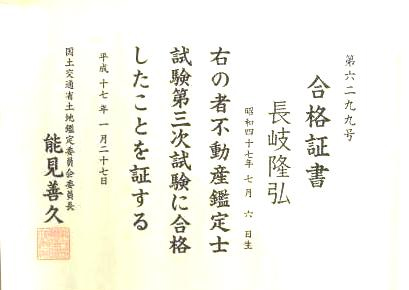 第六二九九号
合格証書
長岐隆弘
昭和四十七年七月六日生
右の者不動産鑑定士
試験第三次試験に合格
したことを証する
平成十七年一月二十七日
国土交通省土地鑑定委員会委員長
能見善久